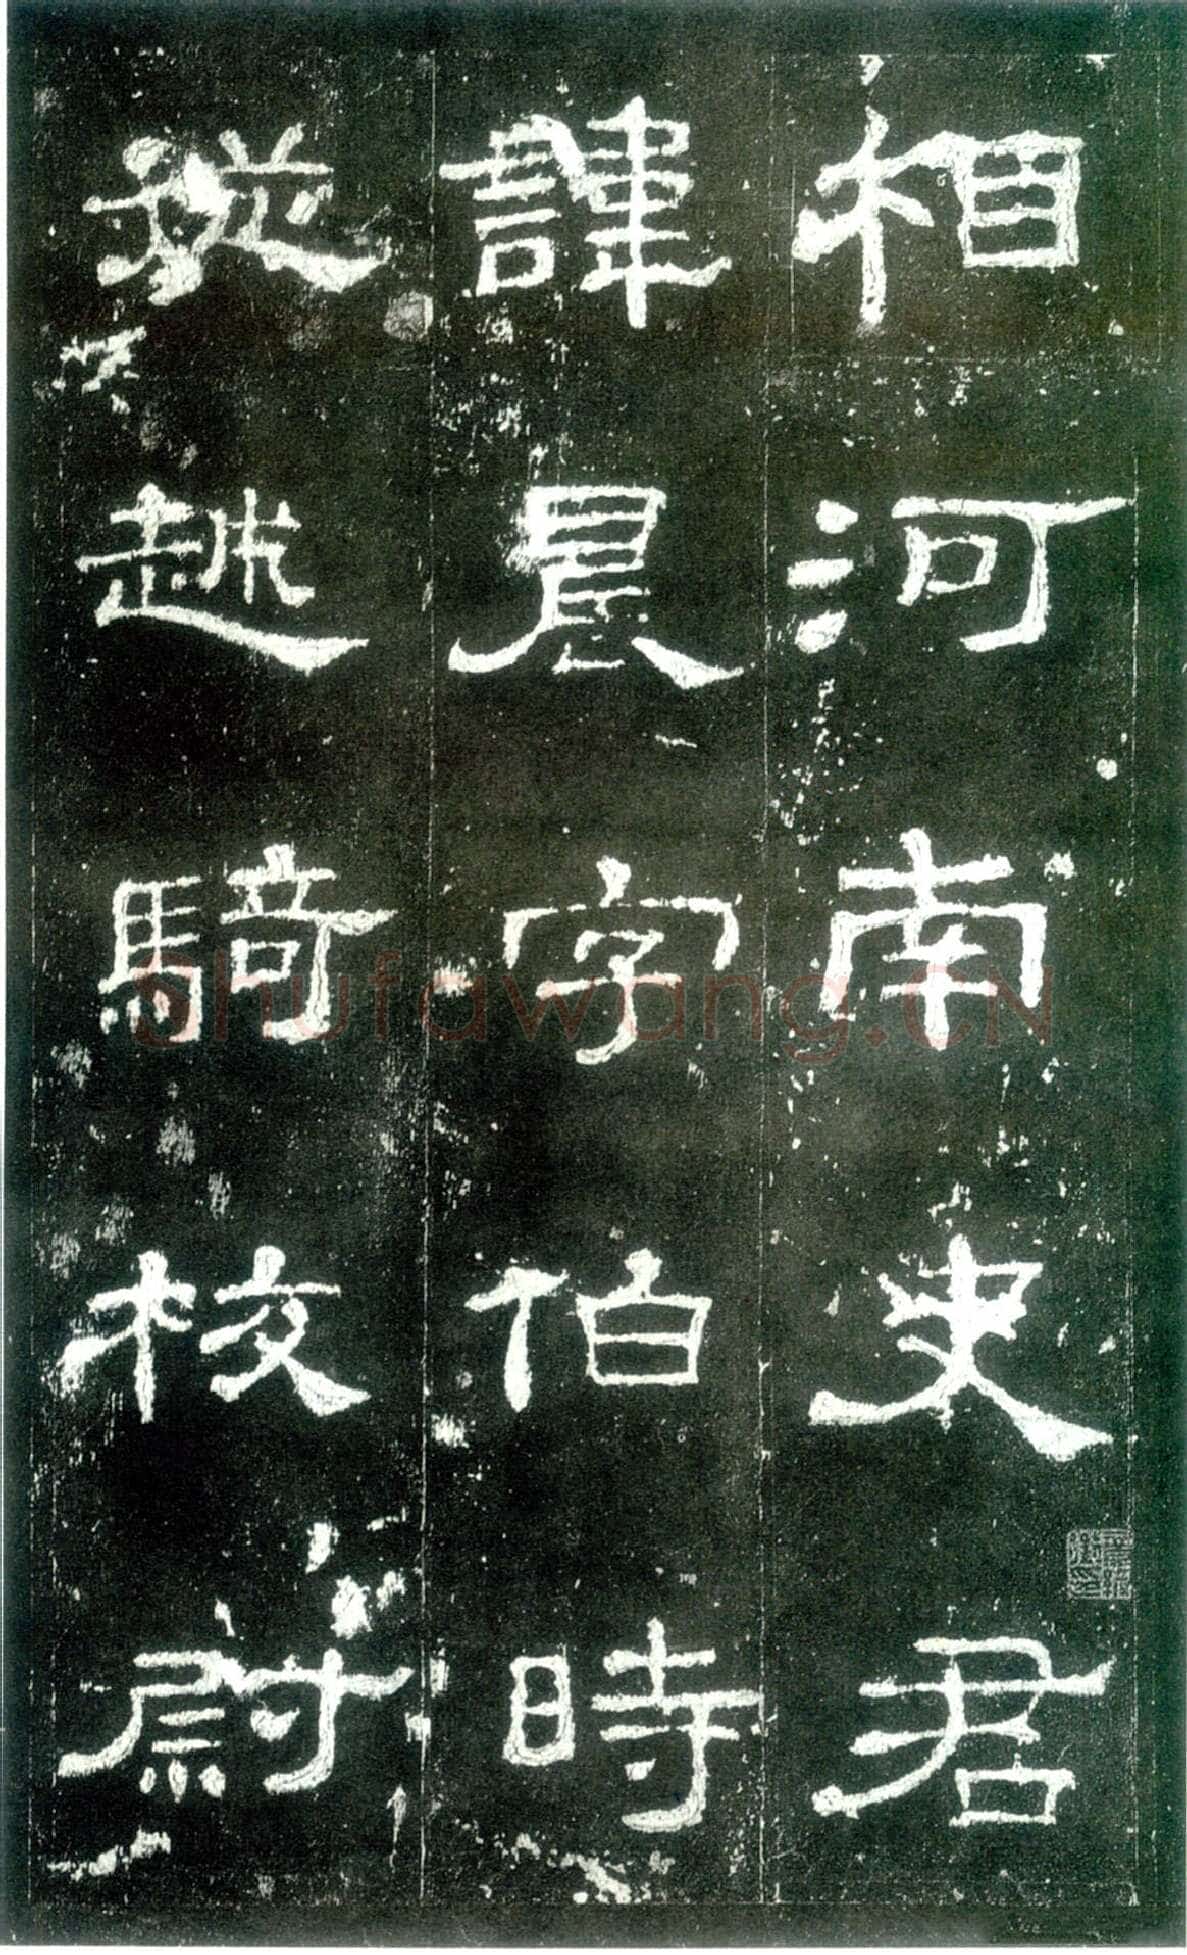 相河南史君
諱晨字伯時
從越騎校尉
Shufawang.CN